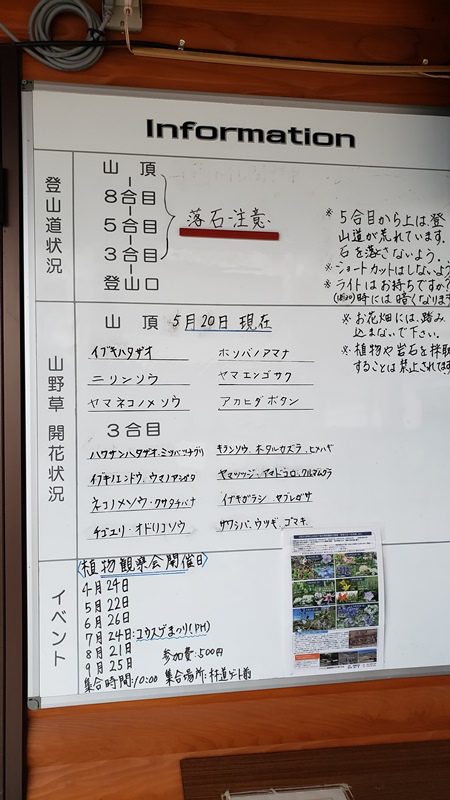 Information
登山道状況
山頂
8合目
5合目
3合目
登山口
落石注意
※5合目から上は登
山道が荒れています。
石を落さないよう。
※ショートカットはしないよう
※ライトはお持ちですか?
時には暗くなります
※お花畑には、踏み
込まないで下さい。
※植物や岩石を採取
することは禁止されてます
山野草 開花状況
山頂 5月20日 現在
イブキハタザオ ホソバノアマナ
ニリンソウ ヤマエンゴサク
ヤマネコノメソウ アカヒダボタン
3合目
ハクサンハタザオ・ミツバツチグリ キランソウ、ホタルカズラ、ヒメハギ
イブキノエンドウ、ウマノアシガタ ヤマツツジ、アマドコロ、クルマムグラ
ネコノメソウ・クサタチバナ イブキガラシ、ヤブレガサ
チゴユリ・オドリコソウ サワシバ、ウツギ、ゴマキ
イベント
〈植物観察会開催日〉
4月24日
5月22日
6月26日
7月24日:ユウスゲまつり(PH)
8月21日 参加費:500円
9月25日
集合時間:10:00 集合場所:林道ゲート前